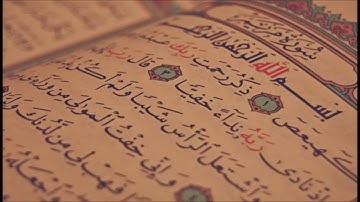 سورة مريم
بسم الله الرحمن الرحيم
كهيعص ١ ذكر رحمت ربك عبده
إذ نادى ربه نداء خفيا ٣ قال رب
واشتعل الرأس شيبا ولم أكن
وإني خفت الموالي من وراءى
فهب لي من لدنك وليا
واجعله